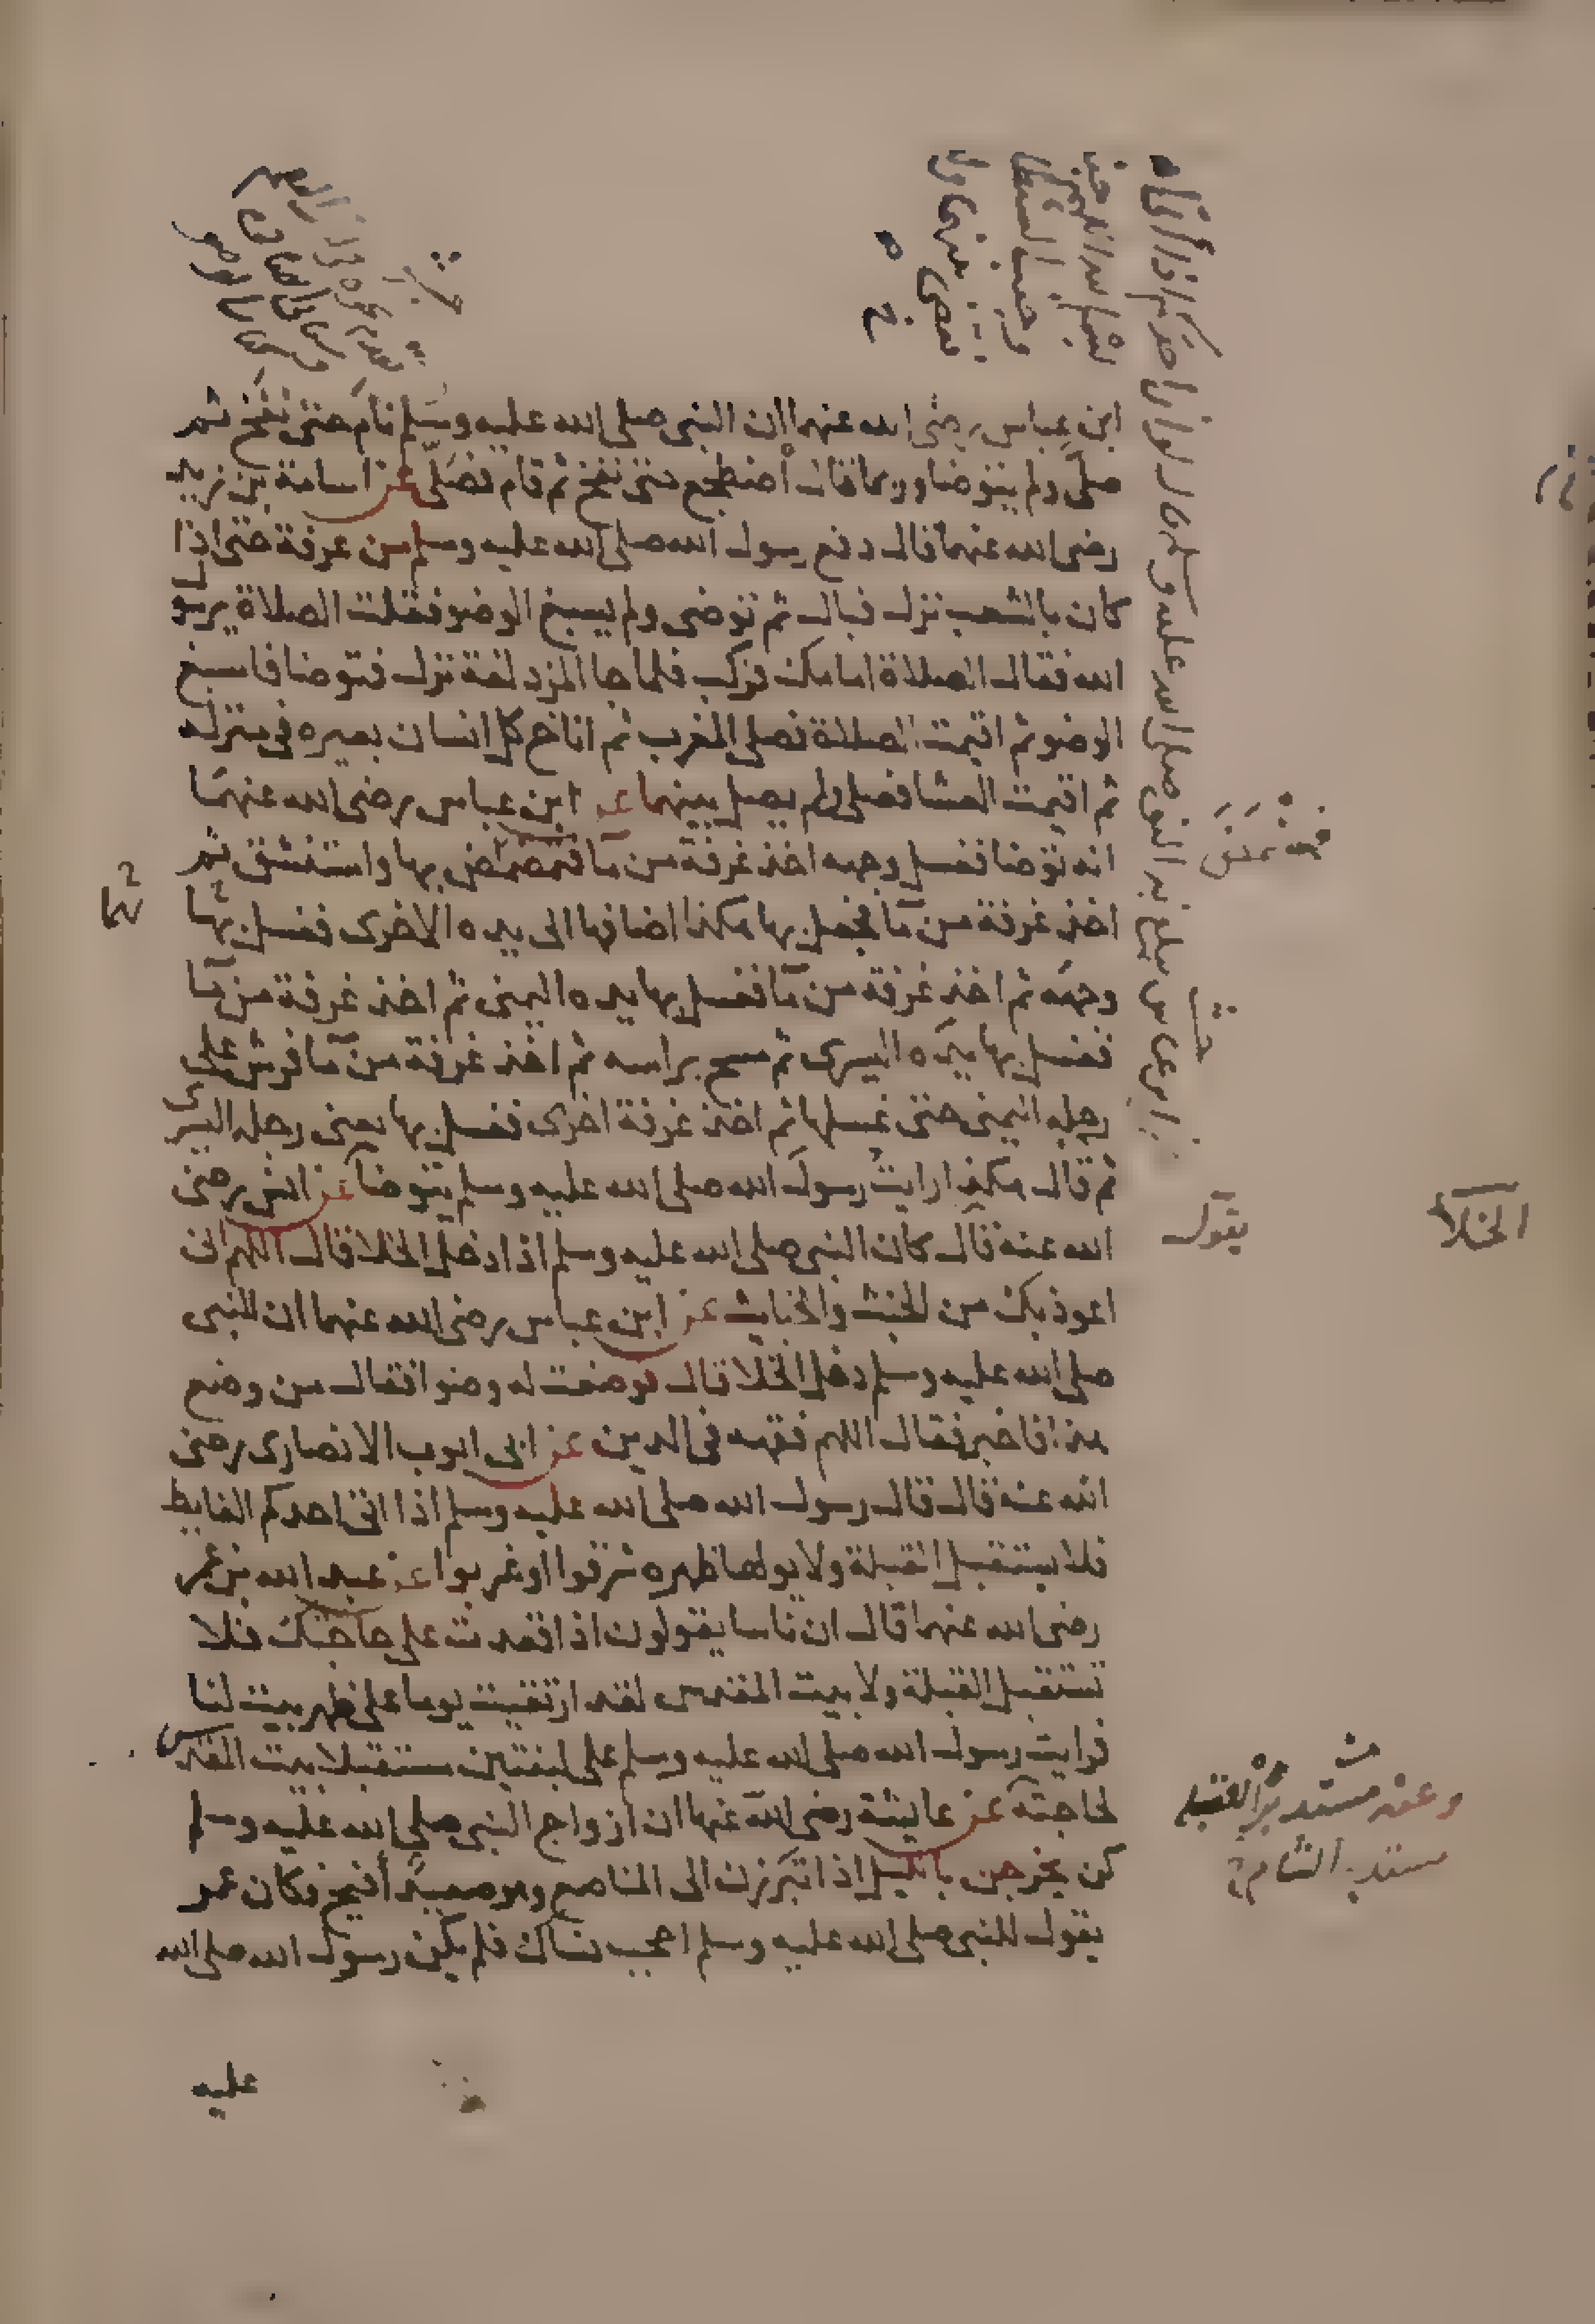 ابن عباس رضى الله عنهما ان النبى صلى الله عليه وسلم نام حتى نفخ ثم
صلى ولم يتوضا وربما قال اضطجع حتى نفخ ثم قام فصلى عن اسامة بن زيد
رضى الله عنهما قال دفع رسول الله صلى الله عليه وسلم من عرفة حتى اذا
كان بالشعب نزل فبال ثم توضى ولم يسبغ الوضو فقلت الصلاة يرسو
الله فقال الصلاة امامك فركب فلما جا المزدلفة نزل فتوضا فاسبغ
الوضو ثم اقيمت الصلاة فصلى المغرب ثم اناخ كل انسان بعيره فى منزله
ثم اقيمت العشا فصلى ولم يصل بينهما عن ابن عباس رضى الله عنهما
انه توضا فغسل وجهه اخذ غرفة من ما فتمضمض بها واستنشق ثم
اخذ غرفة من ما فجعل بها هكذا اضافها الى يده الاخرى فغسل بها
وجهه ثم اخذ غرفة من ما فغسل بها يده اليمنى ثم اخذ غرفة من ما
فغسل بها يده اليسرى ثم مسح براسه ثم اخذ غرفة من ما فرش على
رجله اليمنى حتى غسلها ثم اخذ غرفة اخرى فغسل بها يعنى رجله اليسرى
ثم قال هكذا رايت رسول الله صلى الله عليه وسلم يتوضا عن انس رضى
الله عنه قال كان النبى صلى الله عليه وسلم اذا دخل الخلا قال اللهم انى
يقول
الخلا
اعوذ بك من الخبث والخبايث عن ابن عباس رضى الله عنهما ان النبى
صلى الله عليه وسلم دخل الخلا قال فوضعت له وضوا فقال من وضع
هذا فاخبر فقال اللهم فقهه فى الدين عن ابى ايوب الانصارى رضى
الله عنه قال قال رسول الله صلى الله عليه وسلم اذا اتى احدكم الغايط
فلا يستقبل القبلة ولا يولها ظهره شرقوا او غربوا عن عبد الله بن عمر
رضى الله عنهما قال ان ناسا يقولون اذا قعدت على حاجتك فلا
تستقبل القبلة ولا بيت المقدس لقد ارتقيت يوما على ظهر بيت لنا
فرايت رسول الله صلى الله عليه وسلم على لبنتين مستقبلا بيت المقدس
لحاجته عن عايشة رضى الله عنها ان ازواج النبى صلى الله عليه وسلم
وعنه مستدبر القبلة
مستقبل الشام
كن يخرجن بالليل اذا تبرزن الى المناصع وهو صعيد افيح وكان عمر
يقول للنبى صلى الله عليه وسلم احجب نساك فلم يكن رسول الله صلى الله
عليه